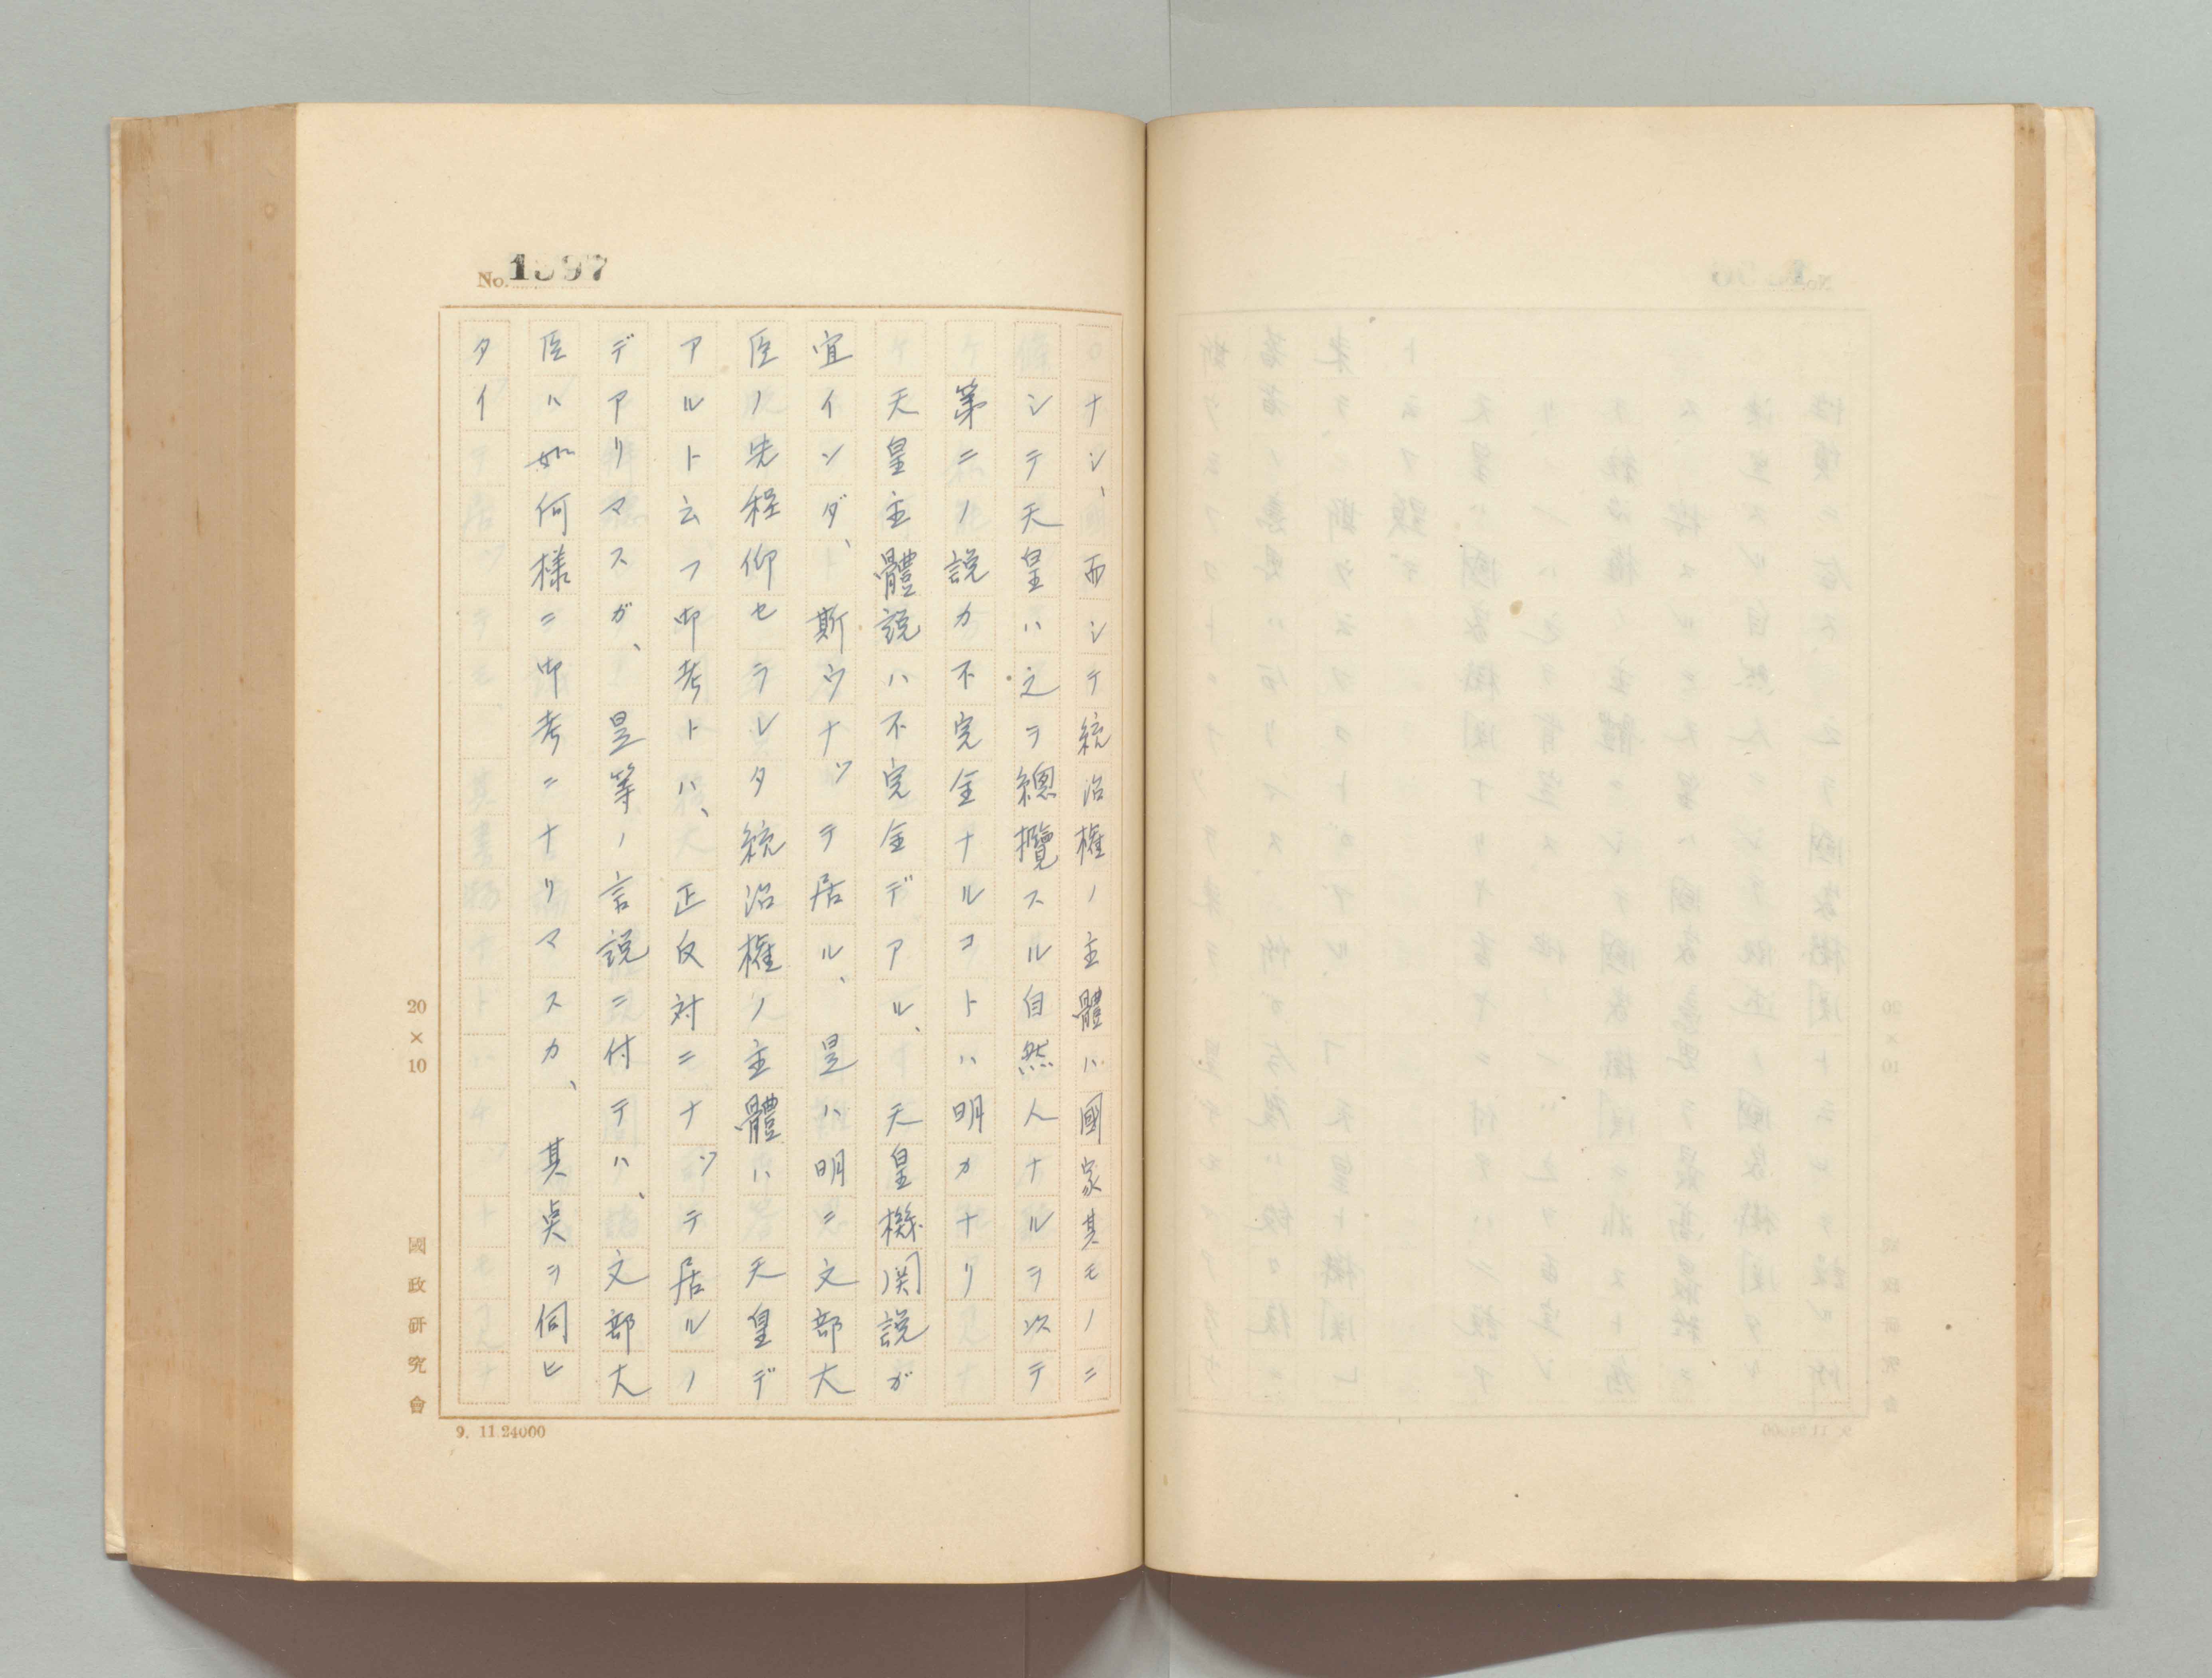 No. 1397
ナシ、而シテ統治權ノ主體ハ國家其モノニ
シテ天皇ハ之ヲ總攬スル自然人ナルヲ以テ
第二ノ説カ不完全ナルコトハ明カナリ
天皇主體説ハ不完全デアル、天皇機関説ガ
宜インダ、斯ウナッテ居ル、是ハ明ニ文部大
臣ノ先程仰セラレタ統治權ノ主體ハ天皇デ
アルト云フ御考トハ、正反対ニナッテ居ルノ
デアリマスガ、是等ノ言説ニ付テハ、文部大
臣ハ如何様ニ御考ニナリマスカ、其奌ヲ伺ヒ
タイ
20×10
國政研究會
9. 11.24000